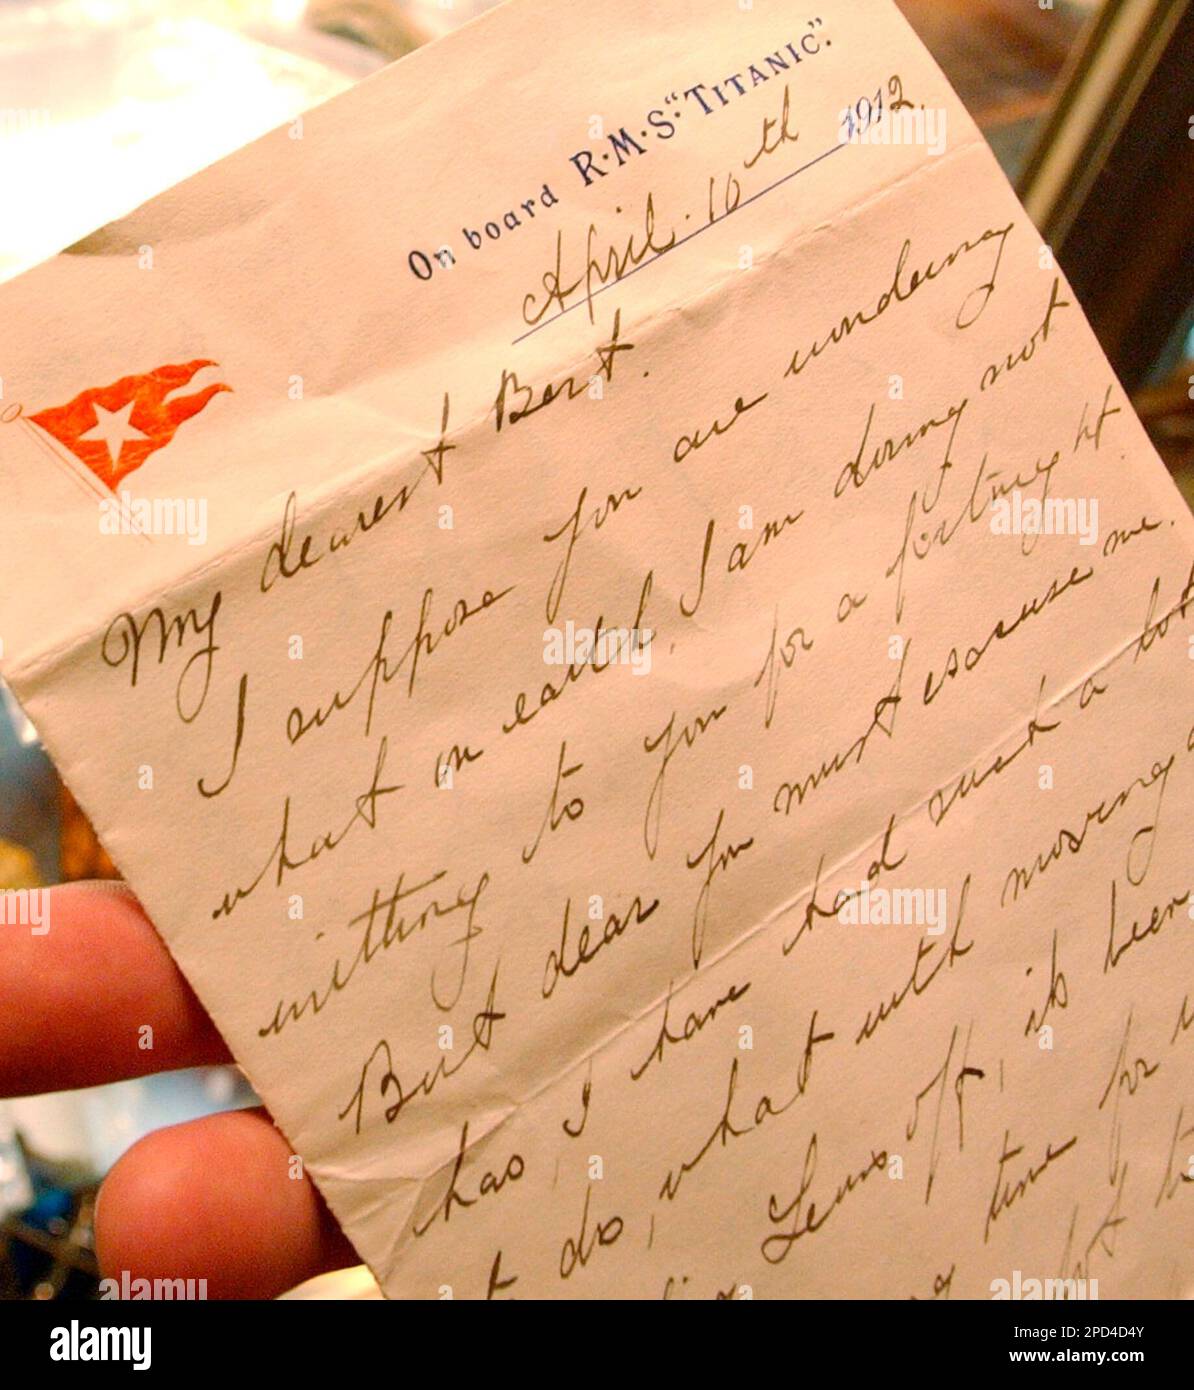 On board R·M·S· "TITANIC".
April 10th 1912.
My dearest Bert.
I suppose you are wondering
what on earth I am doing not
writting to you for a fortnight.
But dear you must excuse me.
has, I have had such a lot
do, what with moving
Lewis off, its been
time for
alamy
Image ID: 2PD4D4Y
www.alamy.com